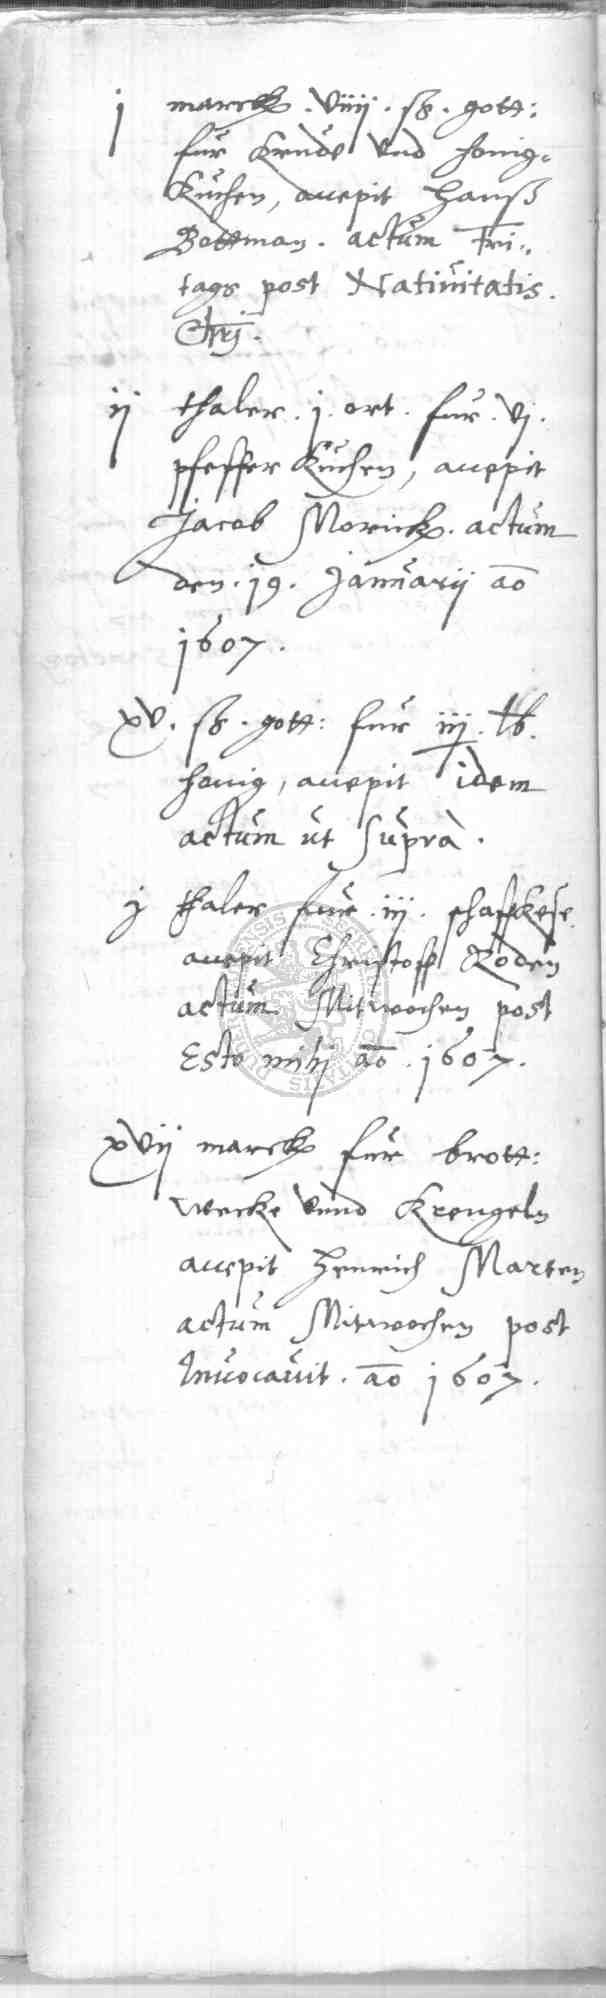 j marck . viiij . ß . gott:
für Krude vnd honig-
Kuchen, accepit Hanß
Bottman . actum Fri-
tags post Natiuitatis .
Chrj .
ij thaler . j . ort . für . vj .
pfeffer Kuchen, accepit
Jacob Morick . actum
den . 19 . Januarij ao
1607 .
xv . ß . gott: für iij . lb .
honig, accepit idem
actum ut supra .
j thaler für . iij . schaffkese
accepit Christoff Roden
actum Mitwochen post
Esto mihj ao . 1607 .
xvij marck für brott:
wecke vnnd Krengeln
accepit Henrich Marten
actum Mitwochen post
Inuocauit . ao 1607 .